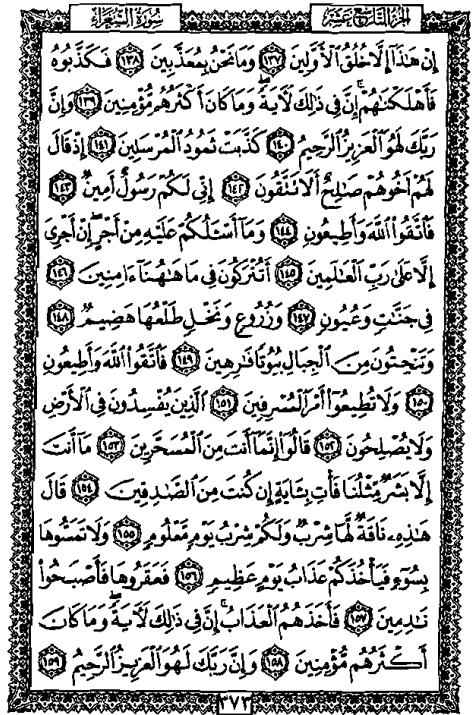 سُورَةُ الشُّعَرَاءِ الجزء التاسع عشر
إِنْ هَٰذَآ إِلَّا خُلُقُ ٱلْأَوَّلِينَ ١٣٧ وَمَا نَحْنُ بِمُعَذَّبِينَ ١٣٨ فَكَذَّبُوهُ
فَأَهْلَكْنَٰهُمْ ۗ إِنَّ فِى ذَٰلِكَ لَءَايَةً ۖ وَمَا كَانَ أَكْثَرُهُم مُّؤْمِنِينَ ١٣٩ وَإِنَّ
رَبَّكَ لَهُوَ ٱلْعَزِيزُ ٱلرَّحِيمُ ١٤٠ كَذَّبَتْ ثَمُودُ ٱلْمُرْسَلِينَ ١٤١ إِذْ قَالَ
لَهُمْ أَخُوهُمْ صَٰلِحٌ أَلَا تَتَّقُونَ ١٤٢ إِنِّى لَكُمْ رَسُولٌ أَمِينٌ ١٤٣
فَٱتَّقُوا۟ ٱللَّهَ وَأَطِيعُونِ ١٤٤ وَمَآ أَسْـَٔلُكُمْ عَلَيْهِ مِنْ أَجْرٍ ۖ إِنْ أَجْرِىَ
إِلَّا عَلَىٰ رَبِّ ٱلْعَٰلَمِينَ ١٤٥ أَتُتْرَكُونَ فِى مَا هَٰهُنَآ ءَامِنِينَ ١٤٦
فِى جَنَّٰتٍ وَعُيُونٍ ١٤٧ وَزُرُوعٍ وَنَخْلٍ طَلْعُهَا هَضِيمٌ ١٤٨
وَتَنْحِتُونَ مِنَ ٱلْجِبَالِ بُيُوتًا فَٰرِهِينَ ١٤٩ فَٱتَّقُوا۟ ٱللَّهَ وَأَطِيعُونِ
١٥٠ وَلَا تُطِيعُوٓا۟ أَمْرَ ٱلْمُسْرِفِينَ ١٥١ ٱلَّذِينَ يُفْسِدُونَ فِى ٱلْأَرْضِ
وَلَا يُصْلِحُونَ ١٥٢ قَالُوٓا۟ إِنَّمَآ أَنتَ مِنَ ٱلْمُسَحَّرِينَ ١٥٣ مَآ أَنتَ
إِلَّا بَشَرٌ مِّثْلُنَا فَأْتِ بِـَٔايَةٍ إِن كُنتَ مِنَ ٱلصَّٰدِقِينَ ١٥٤ قَالَ
هَٰذِهِۦ نَاقَةٌ لَّهَا شِرْبٌ وَلَكُمْ شِرْبُ يَوْمٍ مَّعْلُومٍ ١٥٥ وَلَا تَمَسُّوهَا
بِسُوٓءٍ فَيَأْخُذَكُمْ عَذَابُ يَوْمٍ عَظِيمٍ ١٥٦ فَعَقَرُوهَا فَأَصْبَحُوا۟
نَٰدِمِينَ ١٥٧ فَأَخَذَهُمُ ٱلْعَذَابُ ۗ إِنَّ فِى ذَٰلِكَ لَءَايَةً ۖ وَمَا كَانَ
أَكْثَرُهُم مُّؤْمِنِينَ ١٥٨ وَإِنَّ رَبَّكَ لَهُوَ ٱلْعَزِيزُ ٱلرَّحِيمُ ١٥٩
٣٧٣